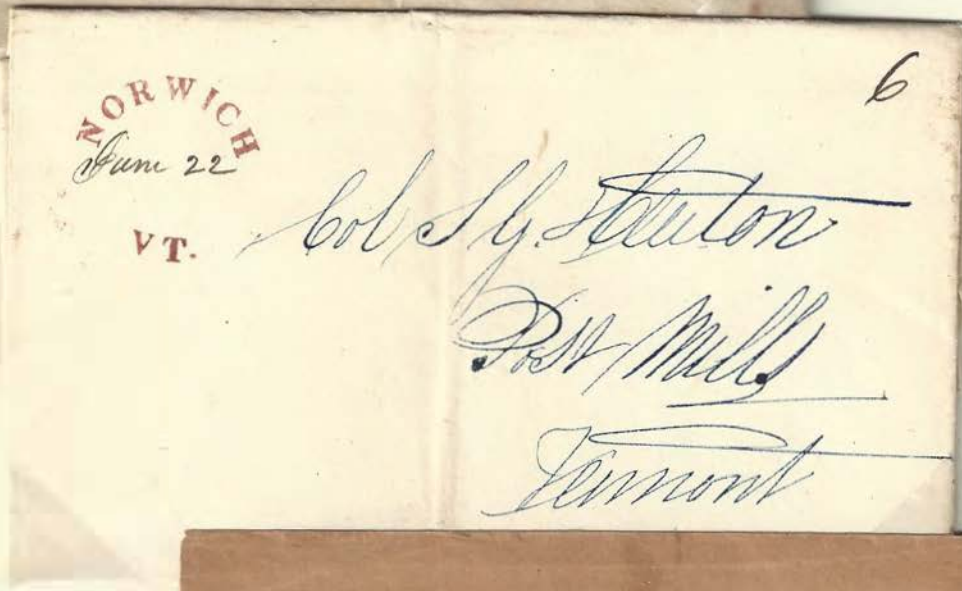 NORWICH
June 22
VT.
6
Col S G. Heaton
Post Mills
Vermont